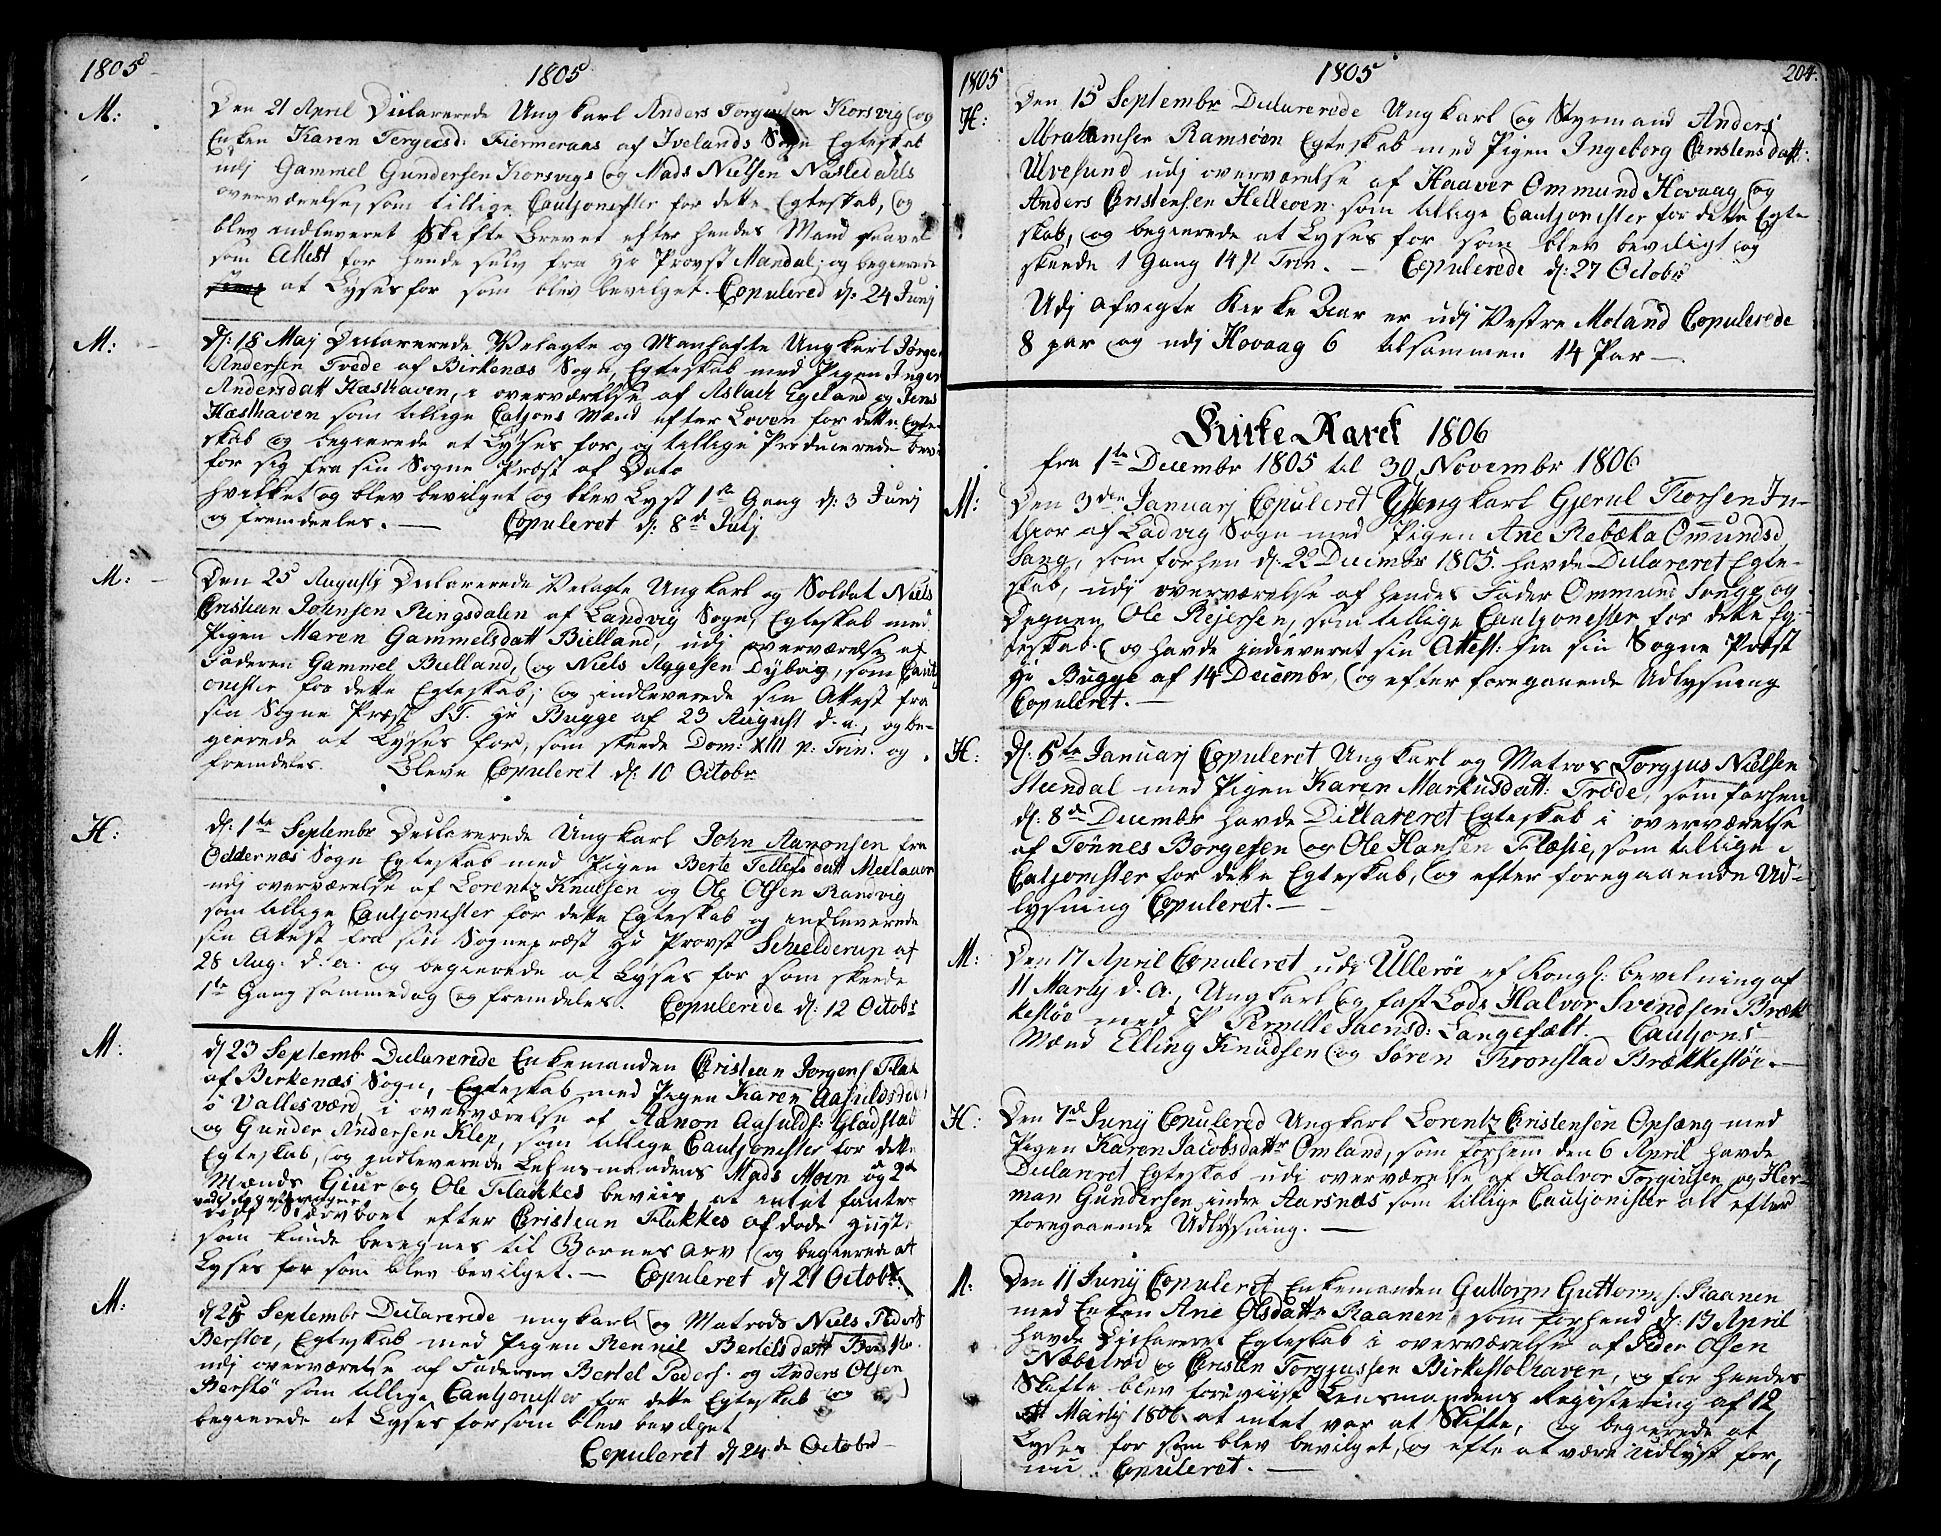 1805
1805
M:
Den 21 April Declarerede Ungkarl Anders Jorgensen Korsvig og
Enken Karen Tergesd: Fiermeraas af Ivelands Sogn Egteskab
udj Gammel Gundersen Korsvigs og Mads Nielsen Nasledahls
overværelse, som tillige Cautjonister for dette Egteskab, og
blev indleveret Skifte Brevet efter hendes Mand saavel
som Attest for hende selv fra Hr Provst Mandal; og begierede
at Lyses for som blev bevilget. Copulered d: 24 Junj
M:
d: 18 Maj Declarerede Velagte og Manhafte Ungkarl Jørgen
Andersen Trede af Birkenæs Sogn, Egteskab med Pigen Inger
Andersdatt Hæsthaven, i overværelse af Aslach Egeland og Jens
Hæsthaven som tillige Catjons Mænd efter Loven for dette Egte-
skab og begierede at Lyses for og tillige Producerede bevis
for sig fra sin Sogne Præst af Dato
hvilket og blev bevilget og blev Lyst 1ste Gang d: 3 Junj
og fremdeeles. — Copuleret d: 8de Julj
M:
Den 25 Augustj Declarerede Velagte Ungkarl og Soldat Niels
Christian Johnsen Ringsdalen af Landvig Sogn, Egteskab med
Pigen Maren Gammelsdatt Bielland, udj overværelse af
Faderen Gammel Bielland, og Niels Aggesen Dybvig, som Cautj
onister for dette Egteskab; og indleverede sin Attest fra
sin Sogne Præst S.T. Hr Bugge af 23 August d. a., og be-
gierede at Lyses for, som skeede Dom: XIII p: Trin. og
fremdeles. Bleve Copuleret d: 10 Octobr
H:
d: 1ste Septembr Declarerede Ungkarl John Aanonsen fra
Oddernæs Sogn Egteskab med Pigen Berte Tellefsdatt Meelaner
udj overværelse af Lorentz Knutsen og Ole Olsen Randvig
som tillige Cautjonister for dette Egteskab og indleverede
sin Attest fra sin Sognepræst Hr Provst Schielderup af
28 Aug. d. a. og begierede at Lyses for som skeede
1ste Gang sammedag og fremdeles. Copulerede d: 12 Octobr
M:
d 23 Septembr Declarerede Enkemanden Christian Jorgens Flak
af Birkenæs Sogn, Egteskab med Pigen Karen Aasuldsdatt
ö Vallesværd i overværelse af Aanon Aasulds: Gladstad
og Gunder Andersen Klep, som tillige Cautjonister for dette
Egteskab, og indleverede Lehnsmandens Mads Moen og 2de
Mænds Gieur og Ole Flakkes beviis at intet fantes
udj Stervboet efter Cristian Flakkes afdøde Hust.
som kunde beregnes til Bornes arv og begierede at
Lyses for som blev bevilget. — Copuleret d 21 Octobr
M:
d 25 Septembr Declarerede ungkarl og Matrods Niels Peders
Berstøe, Egteskab med Pigen Rennil Bertelsdatt Berstøe
udj overværelse af Faderen Bertel Peders. og Anders Olsen
Berstö som tillige Cautjonister for dette Egteskab og
begierede at Lyses for som blev bevilget
Copuleret d 24de Octobr
1805
1805
204.
H:
Den 15 Septembr Declarerede Ungkarl og Styrmand Anders
Abrahamsen Ramsøen Egteskab med Pigen Ingeborg Christensdatt:
Ulvesund udj overværelse af Haaver Ommund Hovaag og
Anders Christensen Helleven som tillige Cautjonister for dette Egte
skab, og begierede at Lyses for som blev beviligt og
skeede 1 Gang 14 p Trin. — Copulerede d: 27 Octobr
Udj afvigte Kirke Aar er udj Vestre Moland Copulerede
8 par og udj Hovaag 6 tilsammen 14 Par —
Kirke Aaret 1806
fra 1ste Decembr 1805 til 30 Novembr 1806
M:
Den 3die Januarj Copuleret Ungkarl Gjerul Thorsen In-
thior af Ladvig Sogn med Pigen Ane Rebæka Omundsd
Sang, som forhen d: 22 Decembr 1805. havde Declareret Egte-
skab, udj overværelse af hendes Fader Ommund Songe og
Degnen Ole Rejersen, som tillige Cautjonister for dette Eg-
teskab. og havde indleveret sin Attest: fra sin Sogne Præst
Hr Bugge af 14 Decembr, og efter foregaaende Udlysning
Copuleret. —
H:
d: 5te Januarj Copuleret Ungkarl og Matros Torgjus Nielsen
Steendal med Pigen Karen Markusdatt: Træde, som forhen
d: 8de Decembr havde Dellareret Egteskab i overværelse
af Tönnes Borgesen og Ole Hansen Flæsie, som tillige
Catjonister for dette Egteskab, og efter foregaaende Ud-
lysning Copuleret. —
M:
Den 17 April Copuleret udj Ullerøe ef Kongl: bevilning af
11 Martj d. A., Ungkarl og fast Lods Halvor Svendsen Bræk
kestøe med P Pernille Jaensd: Langefælt. — Cautjons
Mænd Elling Knudsen og Søren Thronstad Brækkestöe. —
H:
Den 7de Junj Copulered Ungkarl Lorentz Christensen Opsæng med
Pigen Karen Jacobsdattr Omland, som forhen den 6 April havde
Declareret Egteskab udi overværelse af Halvor Torgiusen og Her-
man Gundersen indre Aarsnæs som tillige Cautjonister alt efter
foregaaende Udlysning. —
M.
Den 11 Junj Copuleret Enkemanden Guttorm Guttorms. Raanen
med Enken Ane Olsdattr Raanen, som forhend d: 13 April
havde Declareret Egteskab i overværelse af Peder Olsen
Næbdrød og Christen Torgjussen Birkestolhaven, og for hendes
Skifte blev foreviist Lensmandens Registering af 12
Martj 1806 at intet var at Skifte, og begierede at
Lyses for som blev bevilget, og efter at være Udlyst for,
nu Copuleret. —